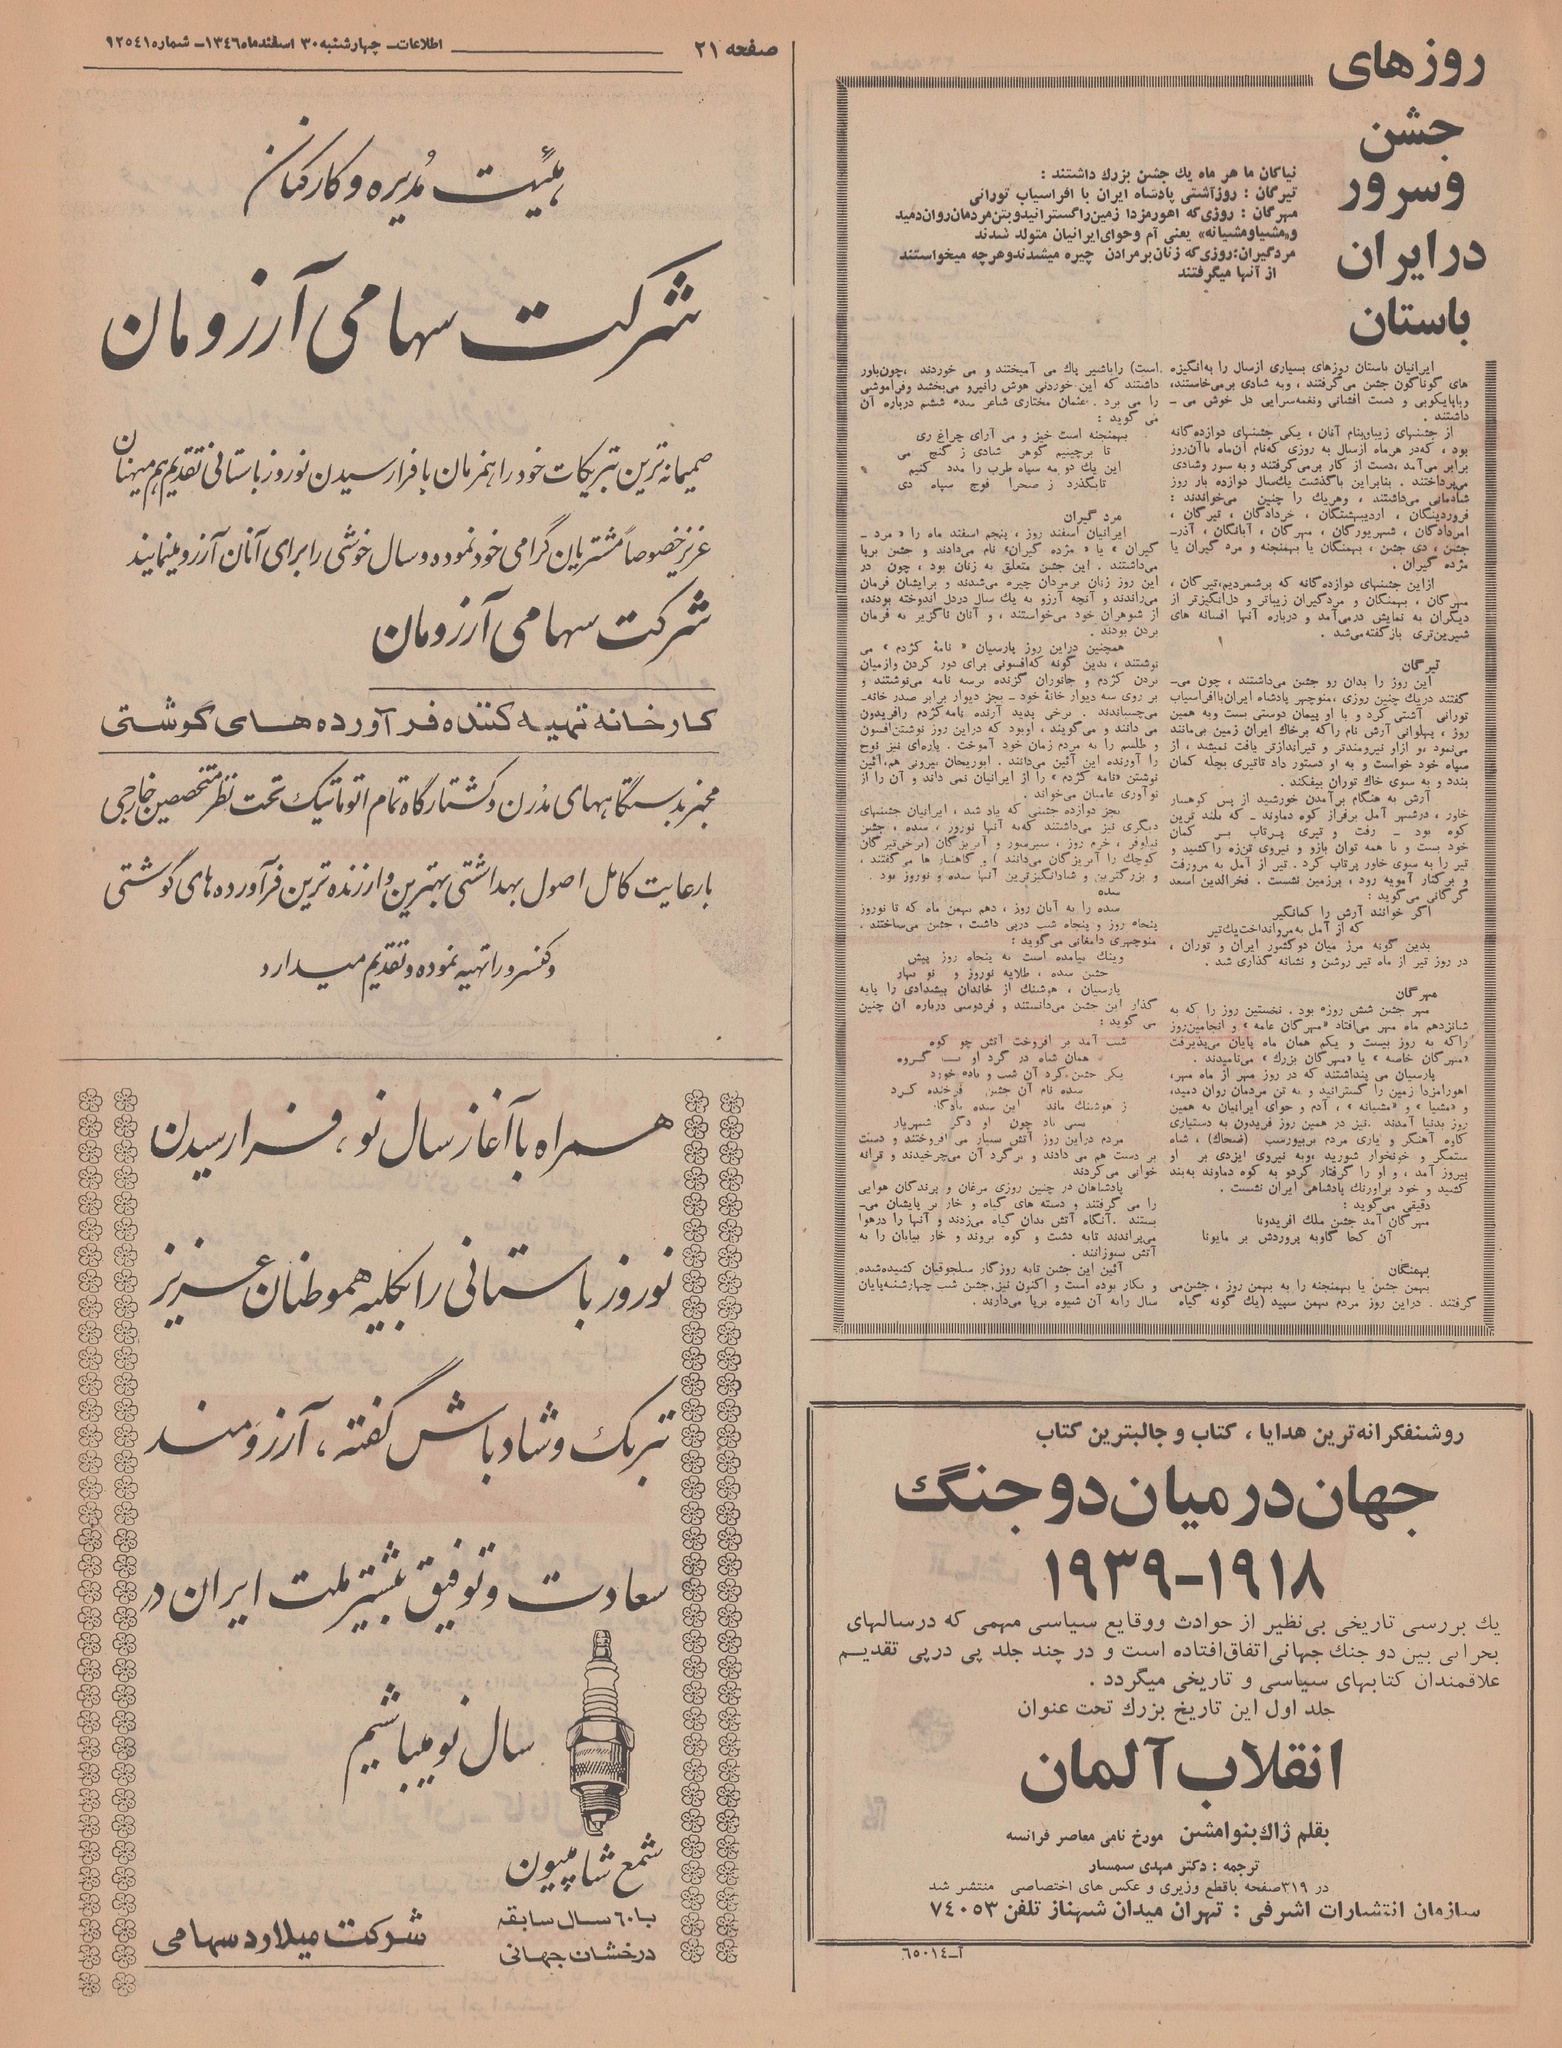 صفحه ۲۱
اطلاعات ـ چهارشنبه ۳۰ اسفندماه ۱۳۴۶ ـ شماره ۹۲۵۴۱
روزهای
جشن
وسرور
درایران
باستان
نیاکان ما هر ماه یك جشن بزرك داشتند :
تیرگان : روزآشتی پادشاه ایران با افراسیاب تورانی
مهرگان : روزی‌که اهورمزدا زمین‌راگسترانیدوبتن‌مردمان‌روان‌دمید
و«مشیاومشیانه» یعنی آم وحوای‌ایرانیان متولد شدند
مردگیران؛روزی‌که زنان‌برمرادن چیره میشدندوهرچه میخواستند
از آنها میگرفتند
ایرانیان باستان روزهای بسیاری ازسال را به‌انگیزه
های گوناگون جشن می‌گرفتند ، وبه شادی برمی‌خاستند،
وباپایکوبی و دست افشانی ونغمه‌سرایی دل خوش می ـ
داشتند .
از جشنهای زیبای‌بنام آنان ، یکی جشنهای دوازده‌گانه
بود ، که‌در هرماه ازسال به روزی که‌نام آن‌ماه باآن‌روز
برابر می‌آمد ،دست از کار برمی‌گرفتند و به سور وشادی
می‌پرداختند . بنابراین باگذشت یك‌سال دوازده بار روز
شادمانی می‌داشتند ، وهریك را چنین می‌خواندند :
فروردینگان ، اردیبهشتگان ، خردادگان ، تیرگان ،
امردادگان ، شهریورگان ، مهرگان ، آبانگان ، آذر-
جشن ، دی جشن ، بهمنگان یا بهمنجنه و مرد گیران یا
مژده گیران .
ازاین جشنهای دوازده‌گانه که برشمردیم،تیرگان ،
مهرگان ، بهمنگان و مردگیران زیباتر و دل‌انگیزتر از
دیگران به نمایش درمی‌آمد و درباره آنها افسانه های
شیرین‌تری بازگفته‌می‌شد .
تیرگان
این روز را بدان رو جشن می‌داشتند ، چون می-
گفتند دریك چنین روزی ،منوچهر پادشاه ایران‌باافراسیاب
تورانی آشتی کرد و با او پیمان دوستی بست وبه همین
روز ، پهلوانی آرش نام راکه برخاك ایران زمین می‌بالند
می‌نمود ،و ازاو نیرومندتر و تیراندازتر یافت نمیشد ، از
سپاه خود خواست و به او دستور داد تاتیری بچله کمان
بندد و به سوی خاك توران بیفکند .
آرش به هنگام برآمدن خورشید از پس کوهسار
خاور ، درشهر آمل برفراز کوه دماوند ـ که بلند ترین
کوه بود ـ رفت و تیری پرتاب بر کمان
خود بست و با همه توان بازو و نیروی تن‌زه راکشید و
تیر را به سوی خاور پرتاب کرد . تیر از آمل به مرورفت
و برکنار آمویه رود ، برزمین نشست . فخرالدین اسعد
گرگانی می‌گوید :
اگر خوانند آرش را کمانگیر
که از آمل به‌مروانداخت‌یك‌تیر
بدین گونه مرز میان دوکشور ایران و توران ،
در روز تیر از ماه تیر روشن و نشانه گذاری شد .
مهرگان
مهر جشن شش روزه بود . نخستین روز را که به
شانزدهم ماه مهر می‌افتاد «مهرگان عامه» و انجامین‌روز
راکه به روز بیست و یکم همان ماه پایان می‌پذیرفت
«مهرگان خاصه » یا «مهرگان بزرك » می‌نامیدند .
پارسیان می پنداشتند که در روز مهر از ماه مهر،
اهورامزدا زمین را گسترانید و به تن مردمان روان دمید،
و «مشیا » و «مشیانه » ، آدم و حوای ایرانیان به همین
روز بدنیا آمدند .نیز در همین روز فریدون به دستیاری
کاوه آهنگر و یاری مردم بربیورسب (ضحاك) ، شاه
ستمگر و خونخوار شورید ،وبه نیروی ایزدی بر او
پیروز آمد ، و او را گرفتار کردو به کوه دماوند به‌بند
کشید و خود براورنك پادشاهی ایران نشست .
دقیقی می‌گوید :
مهرگان آمد جشن ملك افریدونا
آن کجا گاوبه پروردش بر مایونا
بهمنگان
بهمن جشن یا بهمنجنه را به بهمن روز ، جشن‌می
گرفتند . دراین روز مردم بهمن سپید (یك گونه گیاه
است) راباشیر پاك می آمیختند و می خوردند ،چون‌باور
داشتند که این خوردنی هوش رانیرو می‌بخشد وفراموشی
را می برد . عثمان مختاری شاعر سده ششم درباره آن
می گوید :
بهمنجنه است خیز و می آرای چراغ ری
تا برچینیم گوهر شادی ز گنج می
این یك دو مه سپاه طرب را مدد کنیم
تابگذرد ز صحرا فوج سپاه دی
مرد گیران
ایرانیان اسفند روز ، پنجم اسفند ماه را « مرد -
گیران » یا « مژده گیران» نام می‌دادند و جشن برپا
می‌داشتند . این جشن متعلق به زنان بود ، چون در
این روز زنان برمردان چیره می‌شدند و برایشان فرمان
می‌راندند و آنچه آرزو به یك سال دردل اندوخته بودند،
از شوهران خود می‌خواستند ، و آنان ناگزیر به فرمان
بردن بودند .
همچنین دراین روز پارسیان « نامهٔ کژدم » می
نوشتند ، بدین گونه که‌افسونی برای دور کردن وازمیان
بردن کژدم و جانوران گزنده برسه نامه می‌نوشتند و
بر روی سه دیوار خانهٔ خود ـ بجز دیوار برابر صدر خانه-
می‌چسباندند . برخی پدید آرنده نامه‌کژدم رافریدون
می دانند و می‌گویند ، اوبود که دراین روز نوشتن‌افسون
و طلسم را به مردم زمان خود آموخت . پاره‌ای نیز نوح
را آورنده این آئین می‌دانند . ابوریحان بیرونی هم،آئین
نوشتن «نامه کژدم » را از ایرانیان نمی داند و آن را از
نوآوری عامیان می‌خواند .
بجز دوازده جشنی که یاد شد ، ایرانیان جشنهای
دیگری نیز می‌داشتند که‌به آنها نوروز ، سده ، جشن
نیلوفر ، خرم روز ، سیرسور و آبریزگان (برخی‌تیرگان
کوچك را آبریزگان می‌دانند ) و گاهنبار ها می‌گفتند ،
و بزرگترین و شادانگیزترین آنها سده و نوروز بود .
سده
سده را به آبان روز ، دهم بهمن ماه که تا نوروز
پنجاه روز و پنجاه شب درپی داشت ، جشن می‌ساختند .
منوچهری دامغانی می‌گوید :
وینك بیامده است به پنجاه روز پیش
جشن سده ، طلایه نوروز و نو بهار
پارسیان ، هوشنك از خاندان پیشدادی را پایه
گذار این جشن می‌دانستند و فردوسی درباره آن چنین
می گوید :
شب آمد بر افروخت آتش چو کوه
همان شاه در گرد او با گروه
یکی جشن کرد آن شب و باده خورد
سده نام آن جشن فرخنده کرد
ز هوشنك ماند این سده یادگار
بسی باد چون او دگر شهریار
مردم دراین روز آتش بسیار می افروختند و دست
بر دست هم می دادند و برگرد آن می‌چرخیدند و ترانه
خوانی می‌کردند .
پادشاهان در چنین روزی مرغان و پرندگان هوایی
را می گرفتند و دسته های گیاه و خار بر پایشان می-
بستند .آنگاه آتش بدان گیاه می‌زدند و آنها را درهوا
می‌پراندند تابه دشت و کوه بروند و خار بیابان را به
آتش سوزانند .
آئین این جشن تابه روزگار سلجوقیان کشیده‌شده
و بکار بوده است و اکنون نیز جشن شب چهارشنبه‌پایان
سال رابه آن شیوه برپا می‌دارند .
روشنفکرانه‌ترین هدایا ، کتاب و جالبترین کتاب
جهان درمیان دوجنگ
۱۹۱۸ـ۱۹۳۹
یك بررسی تاریخی بی‌نظیر از حوادث ووقایع سیاسی مهمی که درسالهای
بحرانی بین دو جنك جهانی‌اتفاق‌افتاده است و در چند جلد پی درپی تقدیم
علاقمندان کتابهای سیاسی و تاریخی میگردد .
جلد اول این تاریخ بزرك تحت عنوان
انقلاب آلمان
بقلم ژاك‌بنوامشن مورخ نامی معاصر فرانسه
ترجمه : دکتر مهدی سمسار
در ۳۱۹صفحه باقطع وزیری و عکس های اختصاصی منتشر شد
سازمان انتشارات اشرفی : تهران میدان شهناز تلفن ۷۴۰۵۳
آ-۶۵۰۱۴
هیئت مدیره و کارکنان
شرکت سهامی آرزومان
صمیمانه‌ترین تبریکات خود را همزمان با فرارسیدن نوروز باستانی تقدیم هم‌میهنان
عزیز خصوصاً مشتریان گرامی خود نموده و سال خوشی را برای آنان آرزو مینمایند
شرکت سهامی آرزومان
کارخانه تهیه کننده فرآورده‌های گوشتی
مجهز بدستگاههای مدرن و کشتارگاه تمام اتوماتیک تحت نظر متخصصین خارجی
با رعایت کامل اصول بهداشتی بهترین و ارزنده‌ترین فرآورده‌های گوشتی
و کنسرو را تهیه نموده و تقدیم میدارد
همراه با آغاز سال نو ، فرارسیدن
نوروز باستانی را بکلیه هموطنان عزیز
تبریک و شادباش گفته ، آرزومند
سعادت و توفیق بیشتر ملت ایران در
سال نو میباشیم
شمع شامپیون
با ۶۰ سال سابقه
درخشان جهانی
شرکت میلارد سهامی